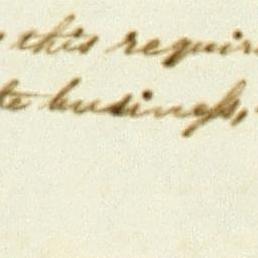 this requir
te business,